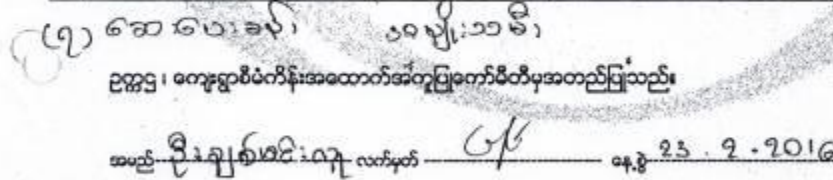 (၇) ဆေးပေးခန်း အမျိုးသမီး
ဥက္ကဋ္ဌ၊ ကျေးရွာစီမံကိန်းအထောက်အကူပြုကော်မတီမှအတည်ပြုသည်။
အမည် ဦးချစ်မင်းလှ လက်မှတ် နေ့စွဲ 23 . 2 . 2016